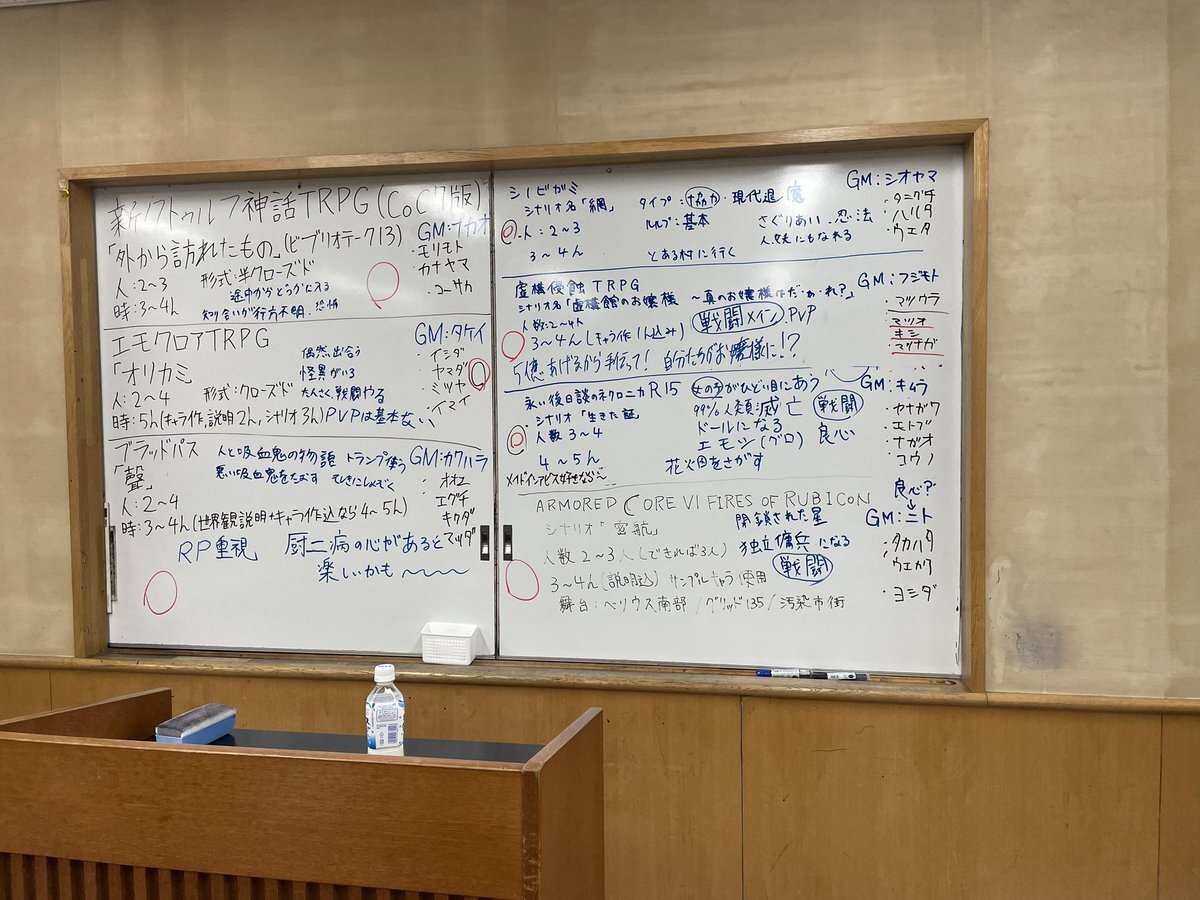 新クトゥルフ神話TRPG(CoC7版)
「外から訪れたもの」(ビブリオテーク13)
GM:ナカオ
人:2~3
形式:半クローズド
・モリモト
・カナヤマ
途中からどうかに入る
時:3~4h
知り合いが行方不明.恐怖
・コーサカ
エモクロアTRPG
GM:タケイ
「オリカミ」
偶然出合う
怪異がいる
・イシダ
・ヤマダ
人:2~4
形式:クローズド
たくさく戦闘やる
・ミツヤ
・イマイ
時:5h(キャラ作,説明2h,シナリオ3h)PVPは基本ない
ブラッドパス
人と吸血鬼の物語 トランプ使う
GM:カワハラ
「聲」
悪い吸血鬼をたおす
・オオエ
人:2~4
・エグチ
時:3~4h(世界観説明+キャラ作込なら4~5h)
・キクタ
RP重視
厨二病の心があると
・マツダ
楽しいかも~~~
シノビガミ
GM:シオヤマ
シナリオ名「網」
タイプ:協力・現代退魔
・タニグチ
人:2~3
ルルブ:基本
さぐりあい.忍法
・ハリタ
・ウエタ
3~4h
とある村に行く
人丈にもなれる
虚構侵蝕TRPG
GM:フジモト
シナリオ名「虚構館のお嬢様 ~真のお嬢様はだ・ぁ・れ?」
・マツウラ
人数:2~4人
戦闘メイン.PVP
・マツオ
3~4h(キャラ作1h込み)
・キシ
・マツナガ
5億あげるから手伝って! 自分たちがお嬢様に!?
永い後日談のネクロニカ R15
女の子がひどい目にあう
GM:キムラ
・シナリオ「生きた証」
99%人類滅亡 戦闘
・ヤナガワ
人数3~4
ドールになる
・エトブ
エモツ(グロ) 良心
・ナガオ
4~5h
花火田をさがす
・コウノ
メイドインアビス好きなら~
良心?
ARMORED CORE VI FIRES OF RUBICON
GM:ニト
シナリオ「密航」
閉鎖された星
・タカハタ
人数2~3人(できれば3人)
独立傭兵になる
・ウエカワ
3~4h(説明込) サンプルキャラ使用
戦闘
・ヨシダ
舞台:ベリウス南部/グリッド135/汚染市街